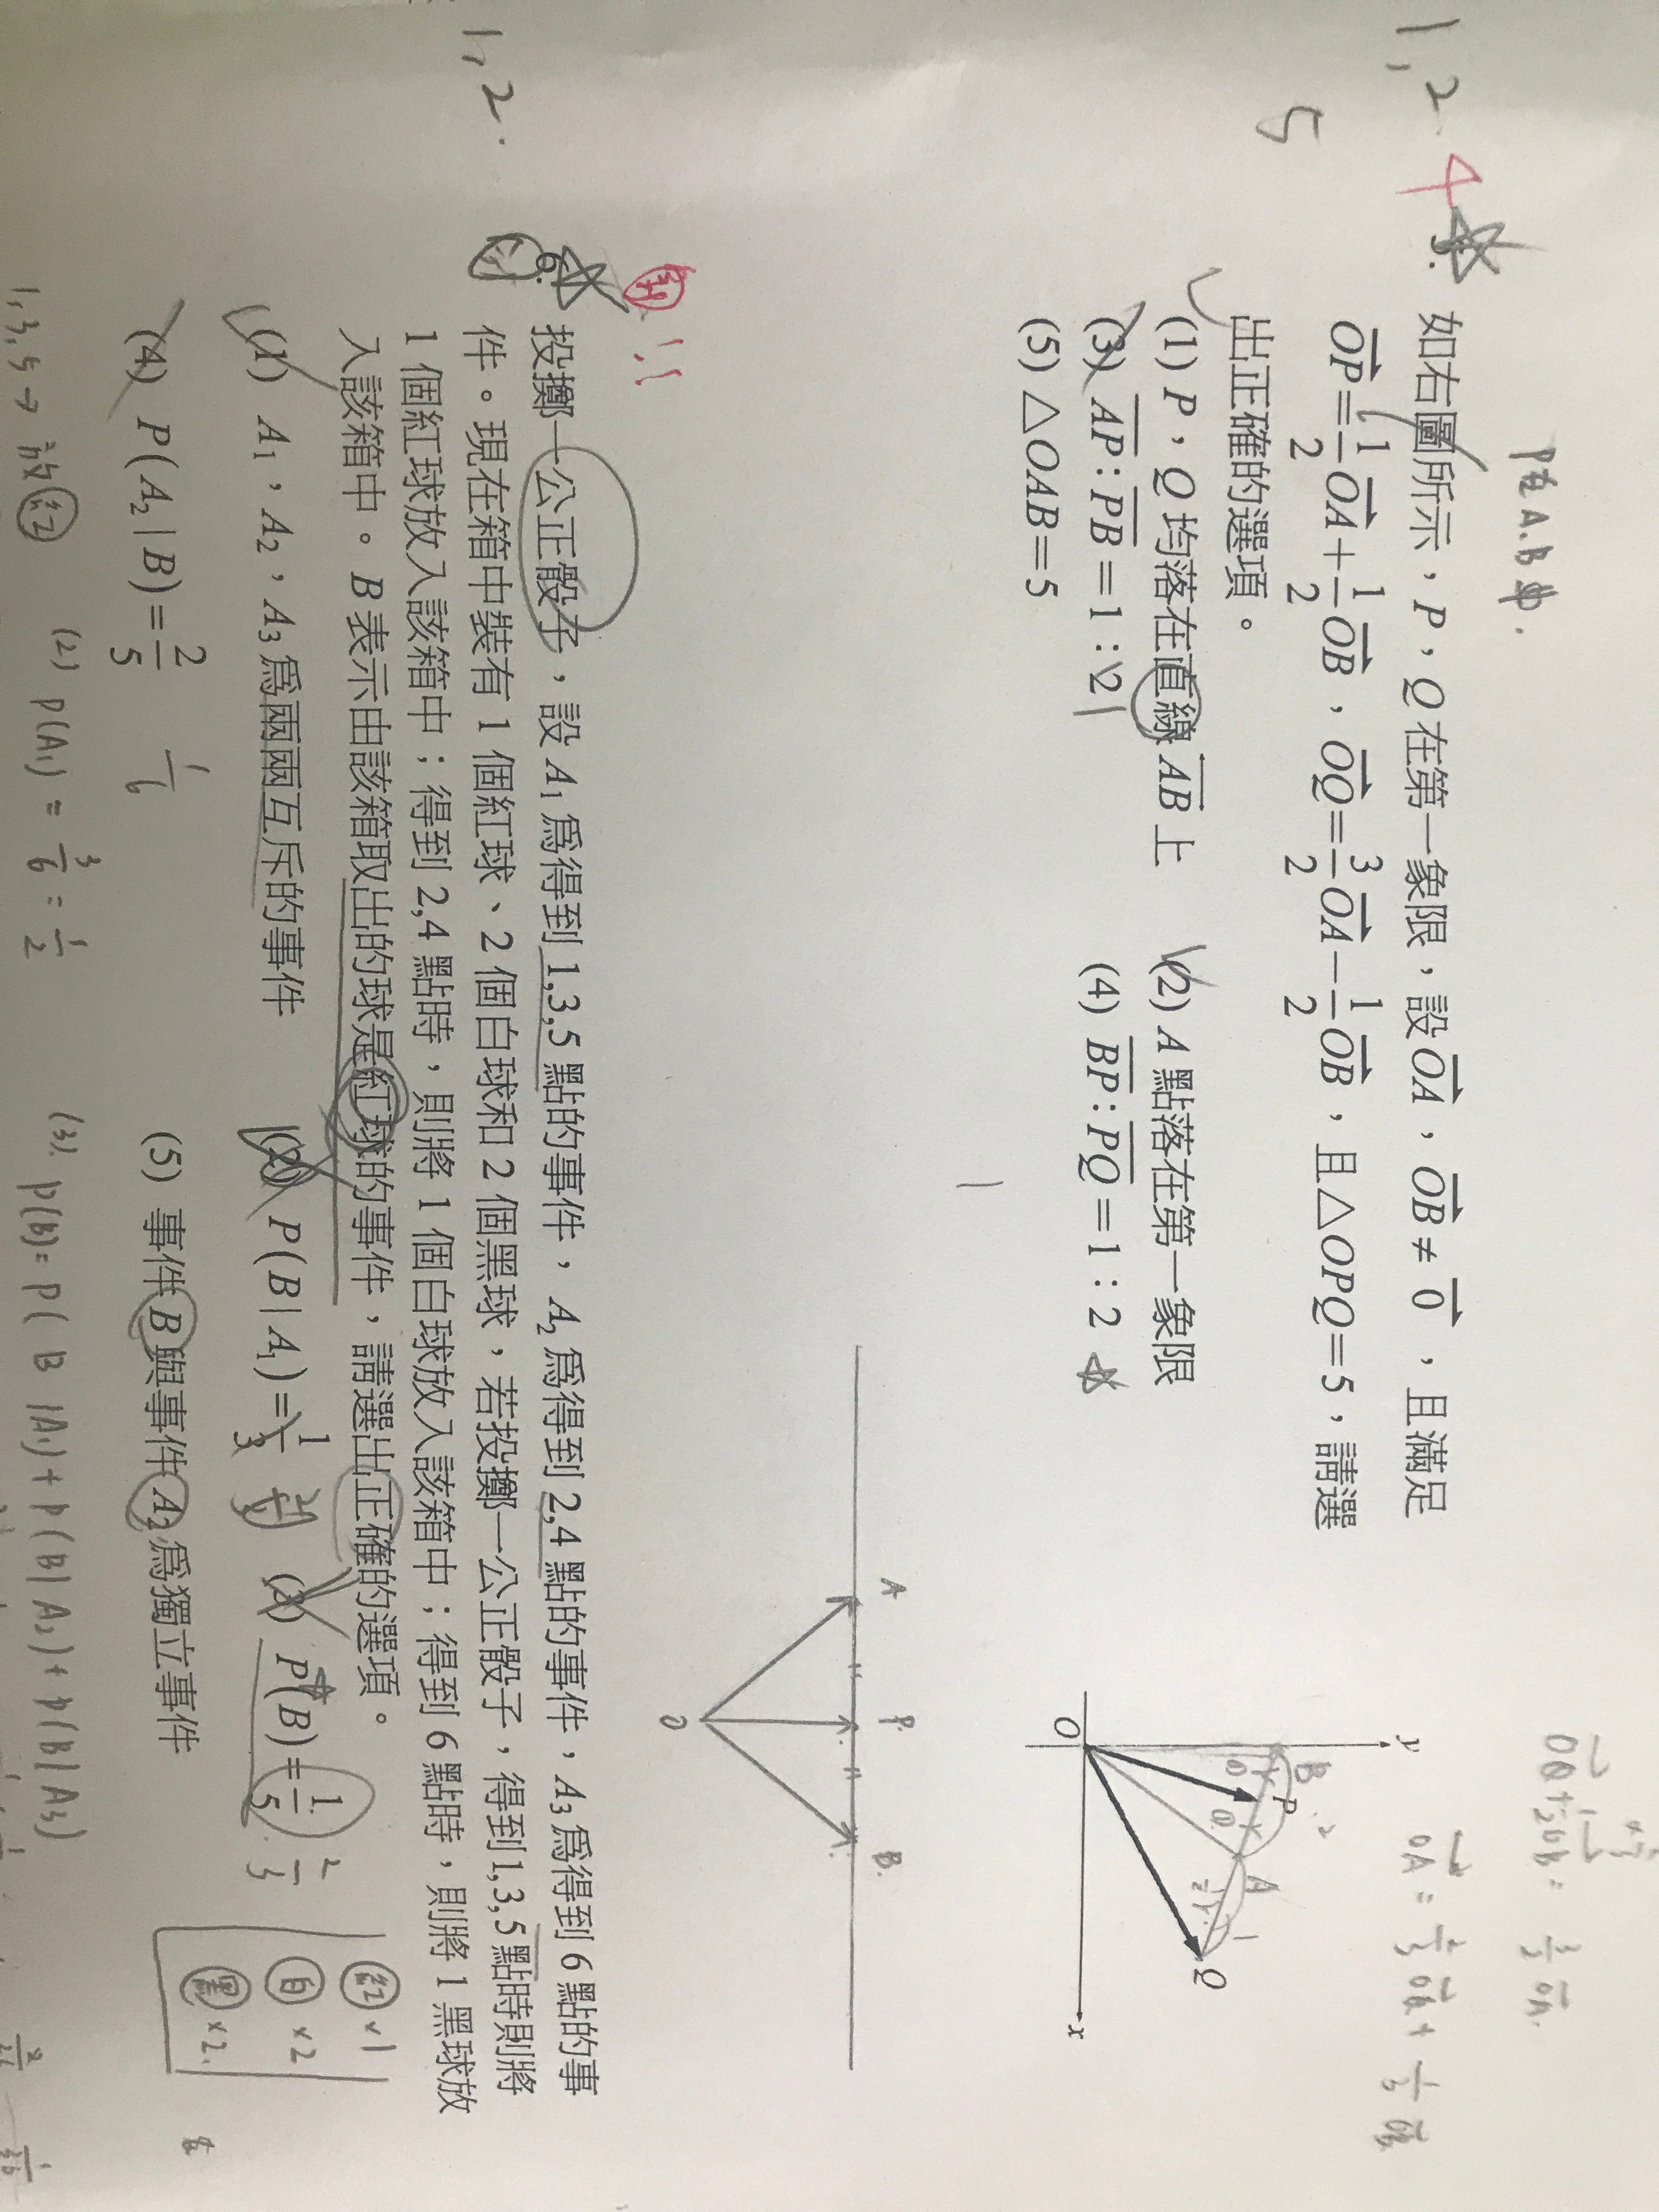 P在A.B中.
1,2
4
5
5. 如右圖所示,P,Q在第一象限,設OA,OB≠0,且滿足
OP=1/2OA+1/2OB,OQ=3/2OA−1/2OB,且△OPQ=5,請選
出正確的選項。
(1) P,Q均落在直線AB上 (2) A點落在第一象限
(3) AP:PB=1:2 (4) BP:PQ=1:2
(5) △OAB=5
1
y
B
P
2
A
1
Q
O
x
OQ+1/2OB=3/2OA.
OA=2/3OQ+1/3OB
A
P.
B.
O
1,2.
6. 投擲一公正骰子,設A1為得到1,3,5點的事件,A2為得到2,4點的事件,A3為得到6點的事
件。現在箱中裝有1個紅球、2個白球和2個黑球,若投擲一公正骰子,得到1,3,5點時則將
1個紅球放入該箱中;得到2,4點時,則將1個白球放入該箱中;得到6點時,則將1黑球放
入該箱中。B表示由該箱取出的球是紅球的事件,請選出正確的選項。
(1) A1,A2,A3為兩兩互斥的事件 (2) P(B|A1)=1/3 (3) P(B)=1/5
(4) P(A2|B)=2/5 (5) 事件B與事件A2為獨立事件
1/6
紅×1
白×2
黑×2.
1,3,5→放紅
(2) P(A1)=3/6=1/2
(3). P(B)=P(B|A1)+P(B|A2)+P(B|A3)